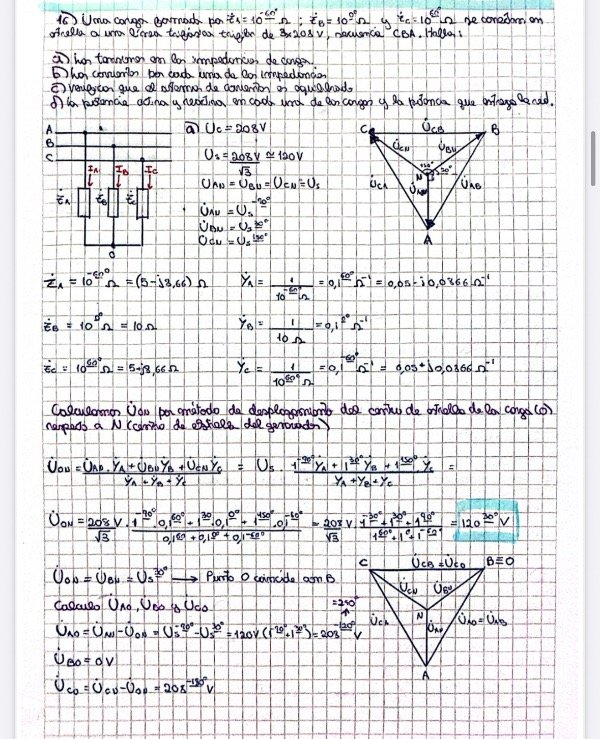 16) Una carga formada por Ż₁ = 10^-60° Ω ; Ż_B = 10^0° Ω y Ż_C = 10^60° Ω se conectan en
estrella a una línea trifásica trifilar de 3x208V, secuencia CBA. Hallar:
a) Las tensiones en las impedancias de carga.
b) Las corrientes por cada una de las impedancias
c) Verificar que el sistema de corrientes es equilibrado
d) La potencia activa y reactiva en cada una de las cargas y la potencia que entrega la red.
A
B
C
I_A I_B I_C
Ż_A Ż_B Ż_C
O
a) U_C = 208V
U_S = 208V/√3 ≃ 120V
U_AN = U_BN = U_CN = U_S
U̇_AN = U_S^-90°
U̇_BN = U_S^30°
U̇_CN = U_S^150°
C U̇_CB B
U̇_CN U̇_BN
150° N 30°
U̇_CA U̇_AN U̇_AB
A
Ż_A = 10^-60° Ω = (5-j8,66) Ω Ẏ_A = 1/10^-60° Ω = 0,1^60° Ω⁻¹ = 0,05-j0,0866 Ω⁻¹
Ż_B = 10^0° Ω = 10 Ω Ẏ_B = 1/10 Ω = 0,1^0° Ω⁻¹
Ż_C = 10^60° Ω = 5+j8,66 Ω Ẏ_C = 1/10^60° Ω = 0,1^-60° Ω⁻¹ = 0,05+j0,0866 Ω⁻¹
Calculamos U̇_ON por método de desplazamiento del centro de estrella de la carga (O)
respecto a N (centro de estrella del generador)
U̇_ON = (U̇_AN.Ẏ_A + U̇_BN Ẏ_B + U̇_CN Ẏ_C)/(Ẏ_A + Ẏ_B + Ẏ_C) = U_S . (1^-90° Ẏ_A + 1^30° Ẏ_B + 1^150° Ẏ_C)/(Ẏ_A + Ẏ_B + Ẏ_C) =
U̇_ON = 208V/√3 . (1^-90°.0,1^60° + 1^30°.0,1^0° + 1^150°.0,1^-60°)/(0,1^60° + 0,1^0° + 0,1^-60°) = 208/√3 V. (1^-30° + 1^30° + 1^90°)/(1^60° + 1^0° + 1^-60°) = 120^30° V
U̇_ON = U̇_BN = U_S^30° → Punto O coincide con B
Calculo U̇_AO, U̇_BO y U̇_CO
=240°
U̇_AO = U̇_AN - U̇_ON = U_S^-90° - U_S^30° = 120V (1^-90° - 1^30°) = 208^-120° V
U̇_BO = 0V
U̇_CO = U̇_CN - U̇_ON = 208^-180° V
C U̇_CB = U̇_CO B≡O
U̇_CN U̇_BN
N
U̇_CA U̇_AN U̇_AO = U̇_AB
A